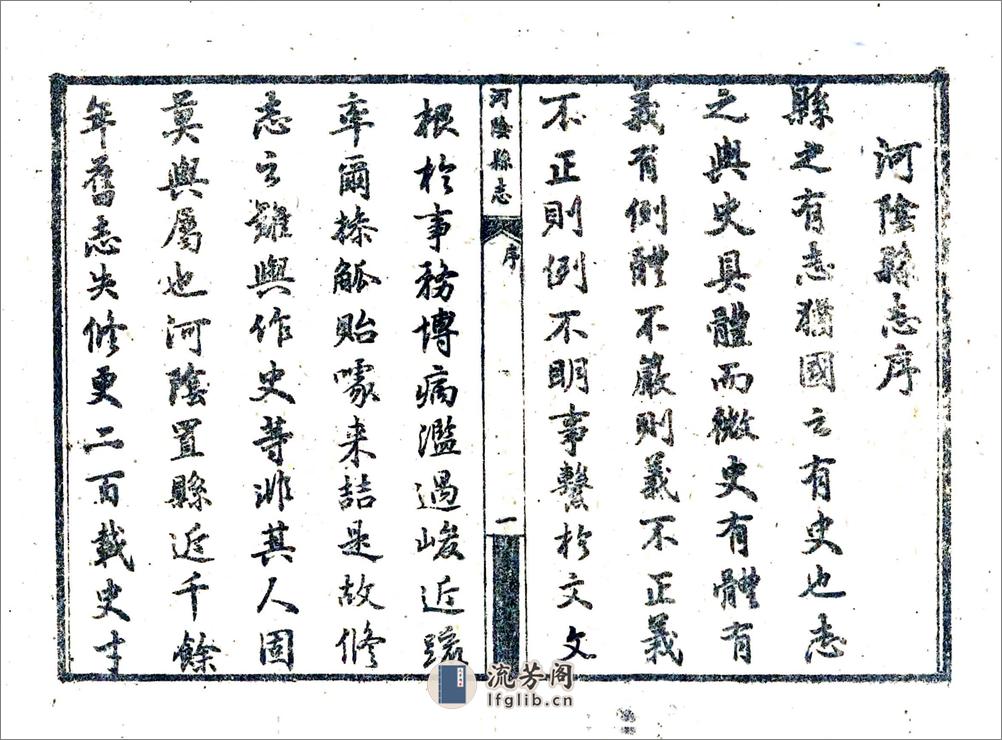 河陰縣志序
縣之有志猶國之有史也志
之與史具體而微史有體有
義有例體不嚴則義不正義
不正則例不明事繫於文文
河陰縣志
序
一
根於事務博病濫過峻近疏
率爾操觚貽噱来詰是故修
志之難與作史等非其人固
莫與屬也河陰置縣近千餘
年舊志失修更二百載史才
流芳阁
lfglib.cn